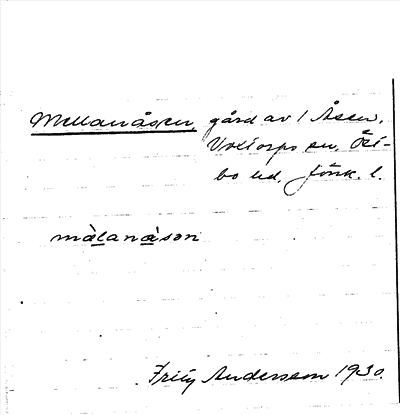 Mellanåsen, gård av 1 Åsen,
Voxtorps sn, Öst-
bo hd, Jönk. l.
mälanåsən
Fritz Andersson 1930.